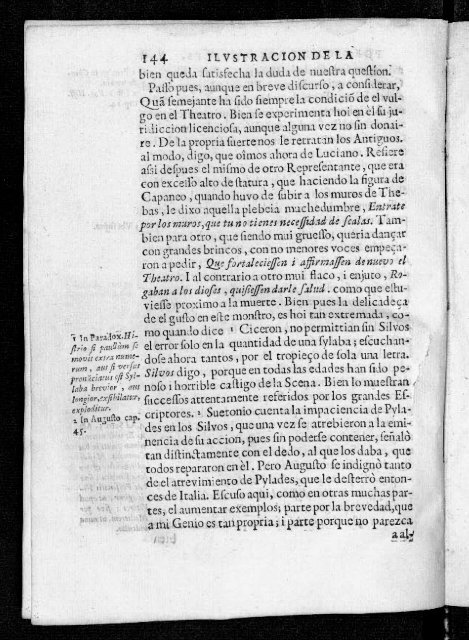 144 ILVSTRACION DE LA
bien queda satisfecha la duda de nuestra question.
Passò pues, aunque en breve discurso, a considerar,
Quã semejante ha sido siempre la condiciõ de el vul-
go en el Theatro. Bien se experimenta hoi en èl su ju-
ridiccion licenciosa, aunque alguna vez no sin donai-
re. De la propria suerte nos le retratan los Antiguos.
al modo, digo, que oîmos ahora de Luciano. Refiere
assi despues el mismo de otro Representante, que era
con excesso alto de statura, que haciendo la figura de
Capaneo, quando huvo de subir a los muros de The-
bas, le dixo aquella plebeia muchedumbre, Entrate
por los muros, que tu no tienes necessidad de scalas. Tam-
bien para otro, que siendo mui gruesso, queria dançar
con grandes brincos, con no menores voces empeça-
ron a pedir, Que fortaleciessen i affirmassen de nuevo el
Theatro. I al contrario a otro mui flaco, i enjuto, Ro-
gaban a los dioses, quisiessen darle salud. como que estu-
viesse proximo a la muerte. Bien pues la delicadeça
de el gusto en este monstro, es hoi tan extremada, co-
mo quando dice 1 Ciceron, no permittian sin Silvos
el error solo en la quantidad de una sylaba; escuchan-
dose ahora tantos, por el tropieço de sola una letra.
Silvos digo, porque en todas las edades han sido pe-
noso i horrible castigo de la Scena. Bien lo muestran
successos attentamente referidos por los grandes Es-
criptores. 2 Suetonio cuenta la impaciencia de Pyla-
des en los Silvos, que una vez se atrebieron a la emi-
nencia de su accion, pues sin poderse contener, señalò
tan distinctamente con el dedo, al que los daba, que
todos repararon en èl. Pero Augusto se indignò tanto
de el atrevimiento de Pylades, que le desterrò enton-
ces de Italia. Escuso aqui, como en otras muchas par-
tes, el aumentar exemplos; parte por la brevedad, que
a mi Genio es tan propria; i parte porque no parezca
a al-
1 In Paradox. Hi-
strio si paullùm se
movit extra nume-
rum, aut si versus
pronũciatus est Syl-
laba brevior, aut
longior, exsibilatur,
exploditur.
2 In Augusto cap.
45.